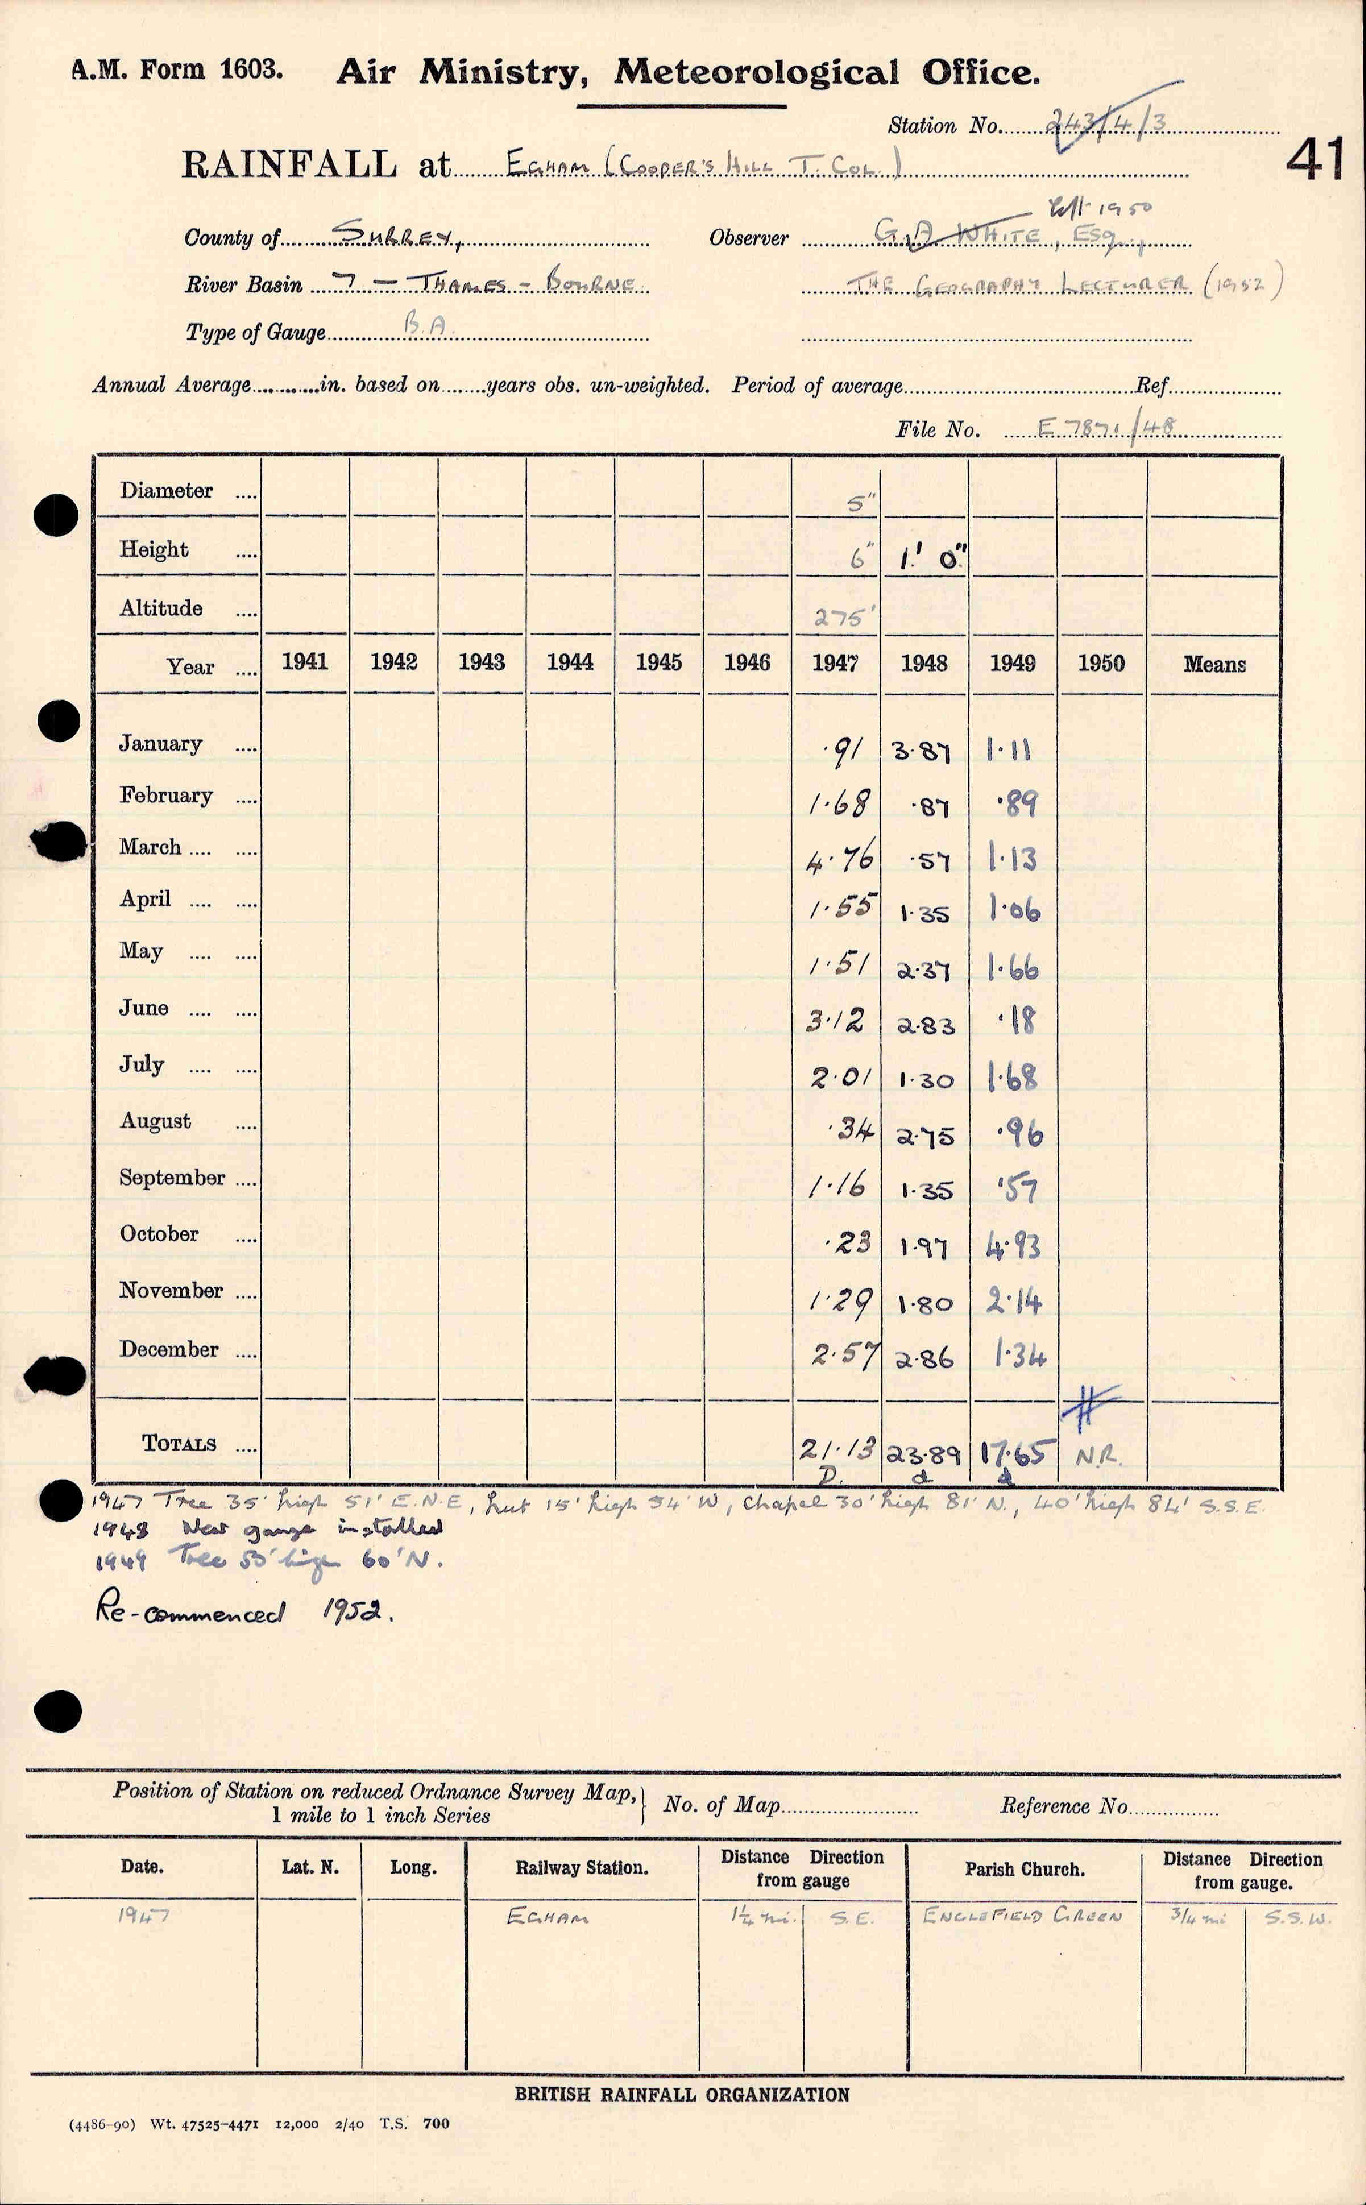 A.M. Form 1603. Air Ministry, Meteorological Office.
Station No. 243/4/3
41
RAINFALL at EGHAM (COOPER'S HILL T. COL.)
left 1950
County of SURREY, Observer G.A WHITE, ESQ.,
River Basin 7 - THAMES - BOURNE THE GEOGRAPHY LECTURER (1952)
Type of Gauge B.A.
Annual Average in. based on years obs. un-weighted. Period of average Ref
File No. E 7871/48
Diameter 5"
Height 6" 1' 0"
Altitude 275'
Year 1941 1942 1943 1944 1945 1946 1947 1948 1949 1950 Means
January .91 3.87 1.11
February 1.68 .87 .89
March 4.76 .57 1.13
April 1.55 1.35 1.06
May 1.51 2.37 1.66
June 3.12 2.83 .18
July 2.01 1.30 1.68
August .34 2.75 .96
September 1.16 1.35 .57
October .23 1.97 4.93
November 1.29 1.80 2.14
December 2.57 2.86 1.34
#
TOTALS 21.13 23.89 17.65 N.R.
D. d d
1947 Tree 35' high 51' E.N.E, hut 15' high 54' W, chapel 30' high 81' N., 40' high 84' S.S.E.
1948 New gauge installed
1949 Tree high 60' N.
Re-commenced 1952.
Position of Station on reduced Ordnance Survey Map, } No. of Map Reference No.
1 mile to 1 inch Series
Date. Lat. N. Long. Railway Station. Distance Direction from gauge Parish Church. Distance Direction from gauge.
1947 EGHAM 1¼ mi. S.E. ENGLEFIELD GREEN 3/4 mi S.S.W.
BRITISH RAINFALL ORGANIZATION
(4486-90) Wt. 47525-4471 12,000 2/40 T.S. 700